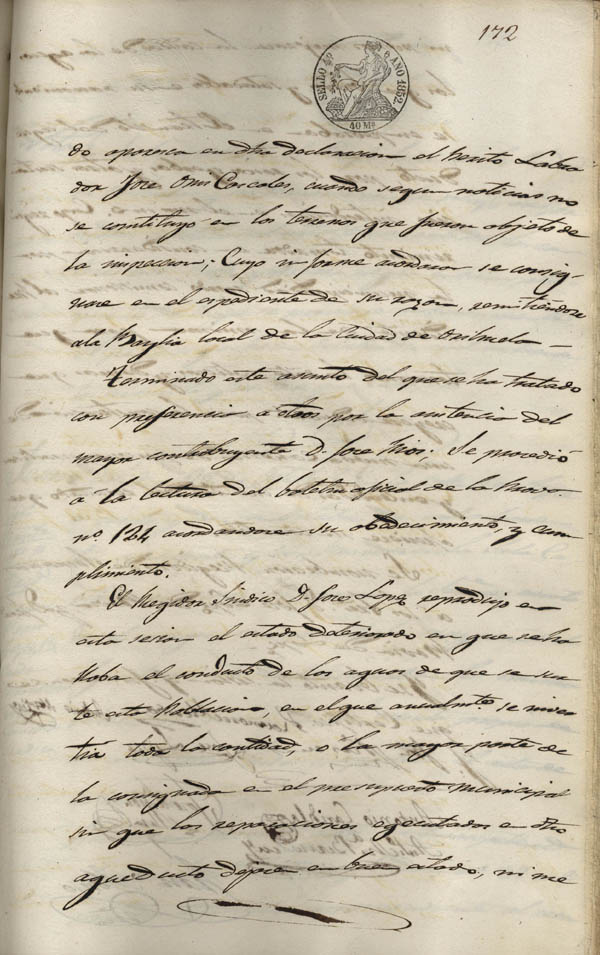 172
SELLO 4º AÑO 1852
40 Ms
do aparesca en dha declaracion el Perito Labra
dor Jose Cascales, cuando segun noticias no
se constituyó en los terrenos que fueron objeto de
la inspeccion; Cuyo informe acordaron se consig-
nare en el espediente de su razon, remitiendose
ala Baylia local de la Ciudad de Orihuela —
Terminado este asunto del que se ha tratado
con preferencia a otros por la asistencia del
mayor contribuyente D. Jose Rios; Se procedió
á la lectura del boletin oficial de la Prova.
nº 124 acordandose su obedecimiento, y cum
plimiento.
El Regidor Sindico D. Jose Lopez reprodujo en
esta sesion el estado deteriorado en que se ha
llaba el conducto de los aguas de que se sur
te esta Poblacion, en el que anualmte. se inver
tia toda la cantidad, o la mayor parte de
la consignada en el presupuesto municipal
sin que las reparaciones egecutadas en dho
aqueducto dejen en buen estado, ni me